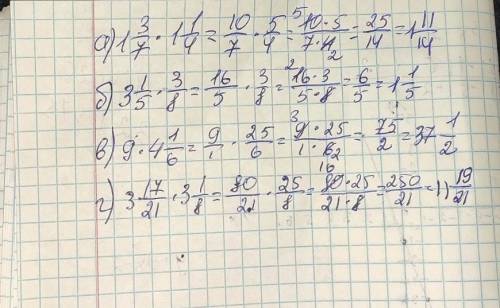 а) 1 3/7 · 1 1/4 = 10/7 · 5/4 = 5 10·5/7·4 2 = 25/14 = 1 11/14
б) 3 1/5 · 3/8 = 16/5 · 3/8 = 2 16·3/5·8 = 6/5 = 1 1/5
в) 9 · 4 1/6 = 9/1 · 25/6 = 3 9·25/1·6 2 = 75/2 = 37 1/2
г) 3 17/21 · 3 1/8 = 80/21 · 25/8 = 10 80·25/21·8 = 250/21 = 11 19/21